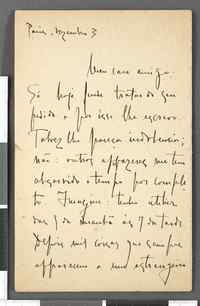 Paris, dezembro 3
Meu caro amigo.
Só hoje pude tratar do seu
pedido e por isso lhe escrevo.
Talvez lhe pareça indolencia;
não: outros affazeres me tem
absorvido o tempo por comple
to. Imagine: tenho
da manhã ás 7 da tarde
Depois mil cousas que sempre
apparecem a um estrangeiro